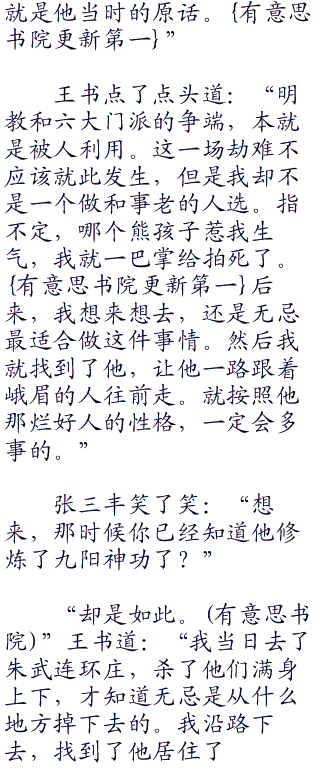 就是他当时的原话。{有意思
书院更新第一}”
王书点了点头道：“明
教和六大门派的争端，本就
是被人利用。这一场劫难不
应该就此发生，但是我却不
是一个做和事老的人选。指
不定，哪个熊孩子惹我生
气，我就一巴掌给拍死了。
{有意思书院更新第一}后
来，我想来想去，还是无忌
最适合做这件事情。然后我
就找到了他，让他一路跟着
峨眉的人往前走。就按照他
那烂好人的性格，一定会多
事的。”
张三丰笑了笑：“想
来，那时候你已经知道他修
炼了九阳神功了？”
“却是如此。(有意思书
院)”王书道：“我当日去了
朱武连环庄，杀了他们满身
上下，才知道无忌是从什么
地方掉下去的。我沿路下
去，找到了他居住了